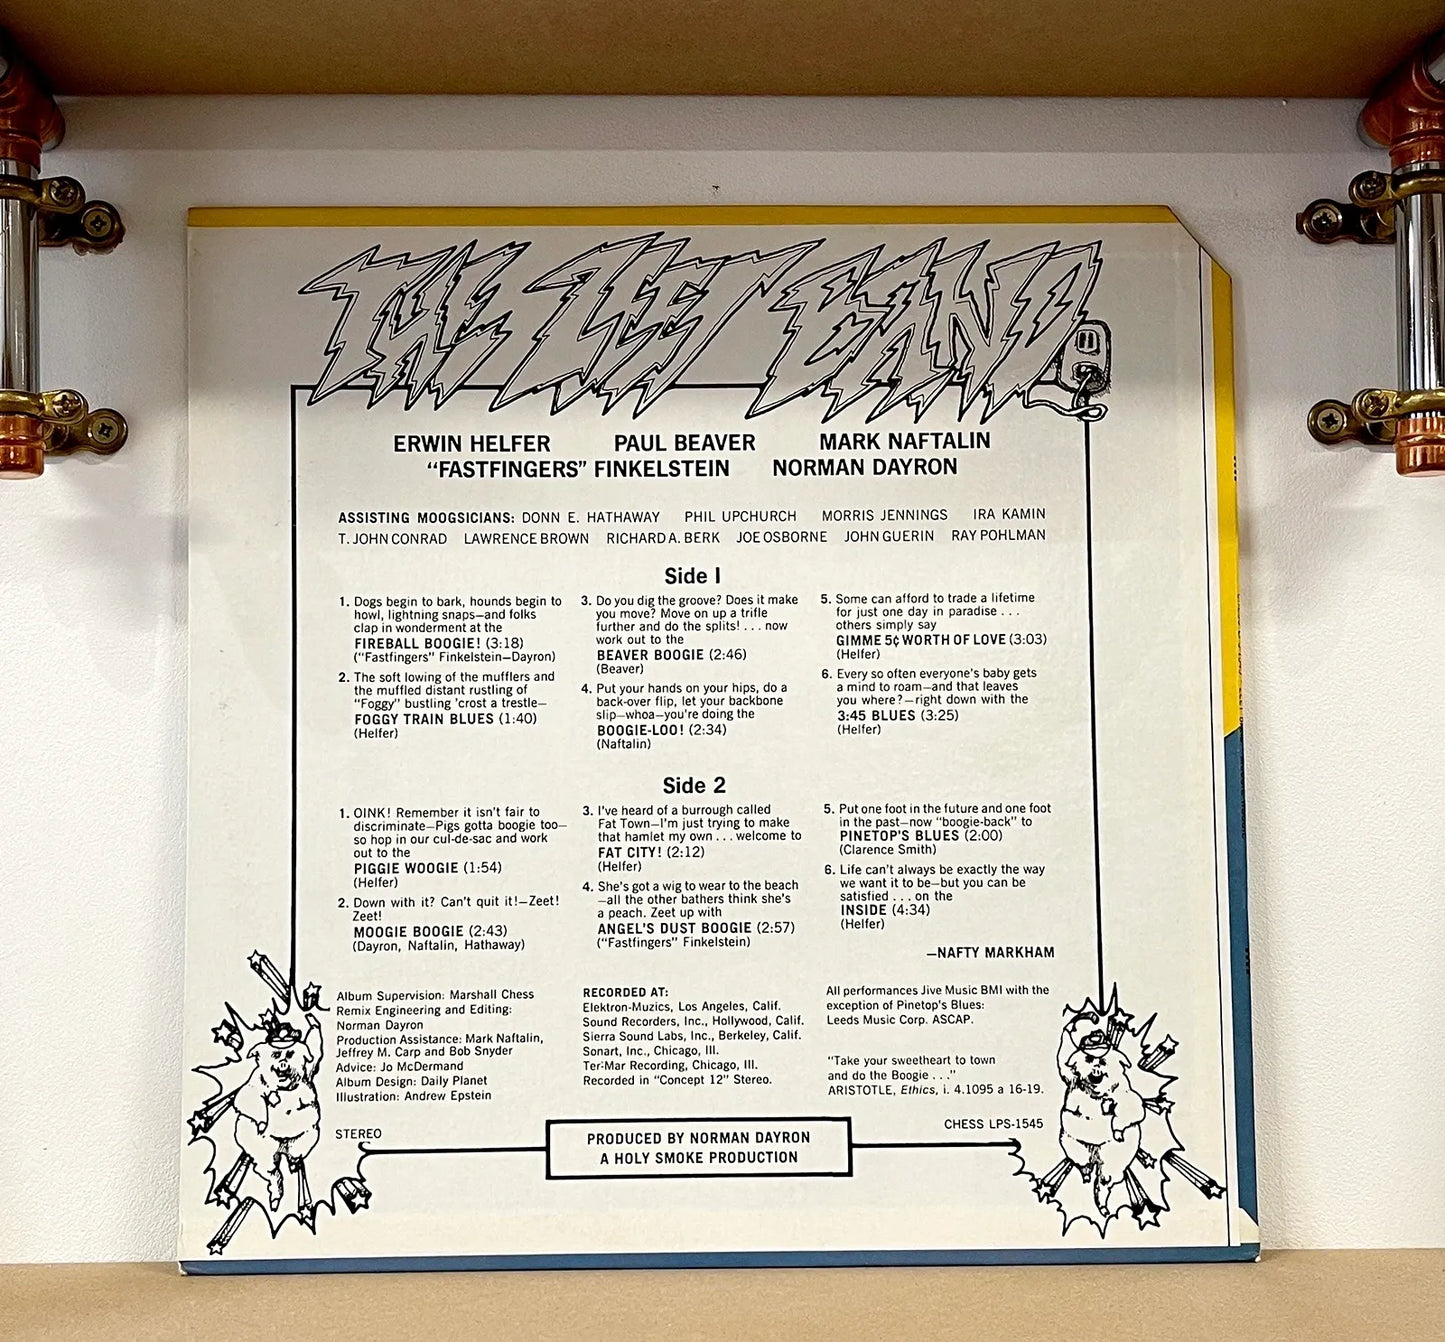 THE ZEET BAND
ERWIN HELFER PAUL BEAVER MARK NAFTALIN
"FASTFINGERS" FINKELSTEIN NORMAN DAYRON
ASSISTING MOOGSICIANS: DONN E. HATHAWAY PHIL UPCHURCH MORRIS JENNINGS IRA KAMIN
T. JOHN CONRAD LAWRENCE BROWN RICHARD A. BERK JOE OSBORNE JOHN GUERIN RAY POHLMAN
Side I
1. Dogs begin to bark, hounds begin to
howl, lightning snaps—and folks
clap in wonderment at the
FIREBALL BOOGIE! (3:18)
("Fastfingers" Finkelstein—Dayron)
2. The soft lowing of the mufflers and
the muffled distant rustling of
"Foggy" bustling 'crost a trestle—
FOGGY TRAIN BLUES (1:40)
(Helfer)
3. Do you dig the groove? Does it make
you move? Move on up a trifle
further and do the splits! . . . now
work out to the
BEAVER BOOGIE (2:46)
(Beaver)
4. Put your hands on your hips, do a
back-over flip, let your backbone
slip—whoa—you're doing the
BOOGIE-LOO! (2:34)
(Naftalin)
5. Some can afford to trade a lifetime
for just one day in paradise . . .
others simply say
GIMME 5¢ WORTH OF LOVE (3:03)
(Helfer)
6. Every so often everyone's baby gets
a mind to roam—and that leaves
you where?—right down with the
3:45 BLUES (3:25)
(Helfer)
Side 2
1. OINK! Remember it isn't fair to
discriminate—Pigs gotta boogie too—
so hop in our cul-de-sac and work
out to the
PIGGIE WOOGIE (1:54)
(Helfer)
2. Down with it? Can't quit it!—Zeet!
Zeet!
MOOGIE BOOGIE (2:43)
(Dayron, Naftalin, Hathaway)
3. I've heard of a burrough called
Fat Town—I'm just trying to make
that hamlet my own . . . welcome to
FAT CITY! (2:12)
(Helfer)
4. She's got a wig to wear to the beach
—all the other bathers think she's
a peach. Zeet up with
ANGEL'S DUST BOOGIE (2:57)
("Fastfingers" Finkelstein)
5. Put one foot in the future and one foot
in the past—now "boogie-back" to
PINETOP'S BLUES (2:00)
(Clarence Smith)
6. Life can't always be exactly the way
we want it to be—but you can be
satisfied . . . on the
INSIDE (4:34)
(Helfer)
—NAFTY MARKHAM
Album Supervision: Marshall Chess
Remix Engineering and Editing:
Norman Dayron
Production Assistance: Mark Naftalin,
Jeffrey M. Carp and Bob Snyder
Advice: Jo McDermand
Album Design: Daily Planet
Illustration: Andrew Epstein
RECORDED AT:
Elektron-Muzics, Los Angeles, Calif.
Sound Recorders, Inc., Hollywood, Calif.
Sierra Sound Labs, Inc., Berkeley, Calif.
Sonart, Inc., Chicago, Ill.
Ter-Mar Recording, Chicago, Ill.
Recorded in "Concept 12" Stereo.
All performances Jive Music BMI with the
exception of Pinetop's Blues:
Leeds Music Corp. ASCAP.
"Take your sweetheart to town
and do the Boogie . . ."
ARISTOTLE, Ethics, i. 4.1095 a 16-19.
STEREO
CHESS LPS-1545
PRODUCED BY NORMAN DAYRON
A HOLY SMOKE PRODUCTION